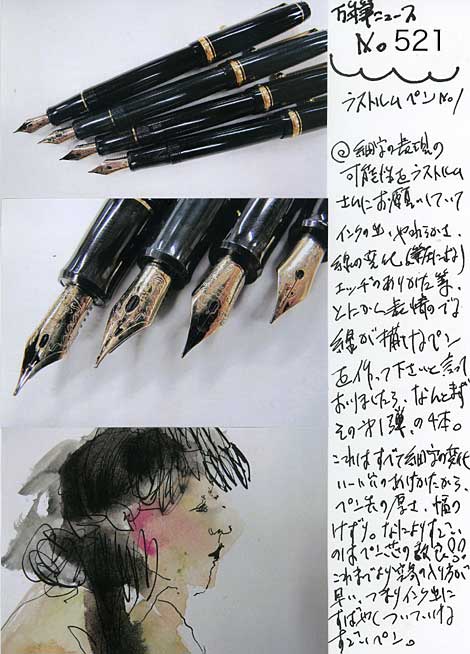 万年筆ニュース
No. 521
ラストルムペンNo1
◎細字の表現の
可能性をラストルム
さんにお願いしていて
インクの出、やわらかさ、
線の変化
エッヂのありかた等、
とにかく表情のでる
線が描けるペン
を作って下さいと言って
おりましたら、なんとまず
その才1弾、の4本。
これはすべて細字の変化
ハート穴のあけかたから、
ペン先の厚さ、幅の
けずり。なによりすごい
のはペン芯の
これまでより空気の入り方が
早い、つまりインク出に
すばやくついていける
すごいペン。